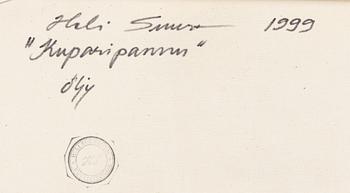 Heli 1999
"Kuparipannu"
öljy